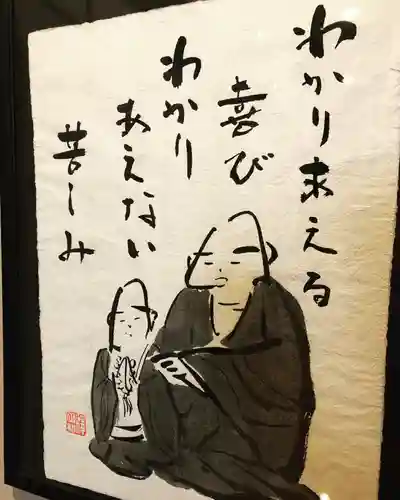 わかり求える
喜び
わかり
あえない
苦しみ